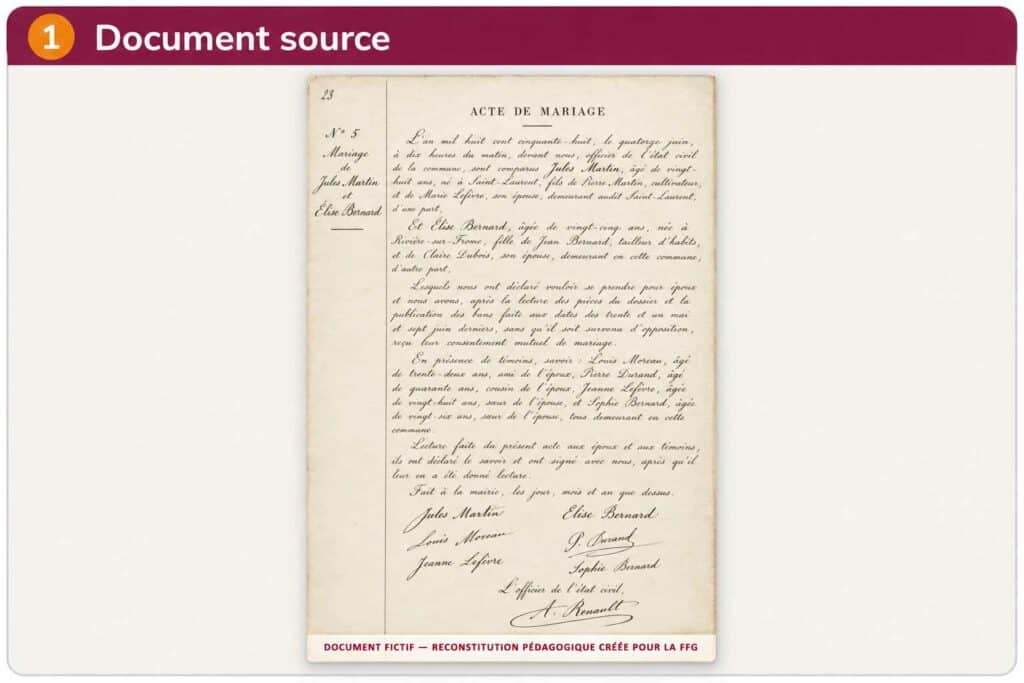 1 Document source
23
N° 5
Mariage
de
Jules Martin
et
Élise Bernard
ACTE DE MARIAGE
L'an mil huit cent cinquante-huit, le quatorze juin,
à dix heures du matin, devant nous, officier de l'état civil
de la commune, sont comparus Jules Martin, âgé de vingt-
huit ans, né à Saint-Laurent, fils de Pierre Martin, cultivateur,
et de Marie Lefèvre, son épouse, demeurant audit Saint-Laurent,
d'une part,
Et Élise Bernard, âgée de vingt-cinq ans, née à
Rivière-sur-Frome, fille de Jean Bernard, tailleur d'habits,
et de Claire Dubois, son épouse, demeurant en cette commune,
d'autre part,
Lesquels nous ont déclaré vouloir se prendre pour époux
et nous avons, après la lecture des pièces du dossier et la
publication des bans faite aux dates des trente et un mai
et sept juin derniers, sans qu'il soit survenu d'opposition,
reçu leur consentement mutuel de mariage.
En présence de témoins, savoir : Louis Moreau, âgé
de trente-deux ans, ami de l'époux, Pierre Durand, âgé
de quarante ans, cousin de l'époux, Jeanne Lefèvre, âgée
de vingt-huit ans, sœur de l'épouse, et Sophie Bernard, âgée
de vingt-six ans, sœur de l'épouse, tous demeurant en cette
commune.
Lecture faite du présent acte aux époux et aux témoins,
ils ont déclaré le savoir et ont signé avec nous, après qu'il
leur en a été donné lecture.
Fait à la mairie, les jour, mois et an que dessus.
Jules Martin Elise Bernard
Louis Moreau P. Durand
Jeanne Lefèvre Sophie Bernard
L'officier de l'état civil,
A. Renault
DOCUMENT FICTIF — RECONSTITUTION PÉDAGOGIQUE CRÉÉE POUR LA FFG